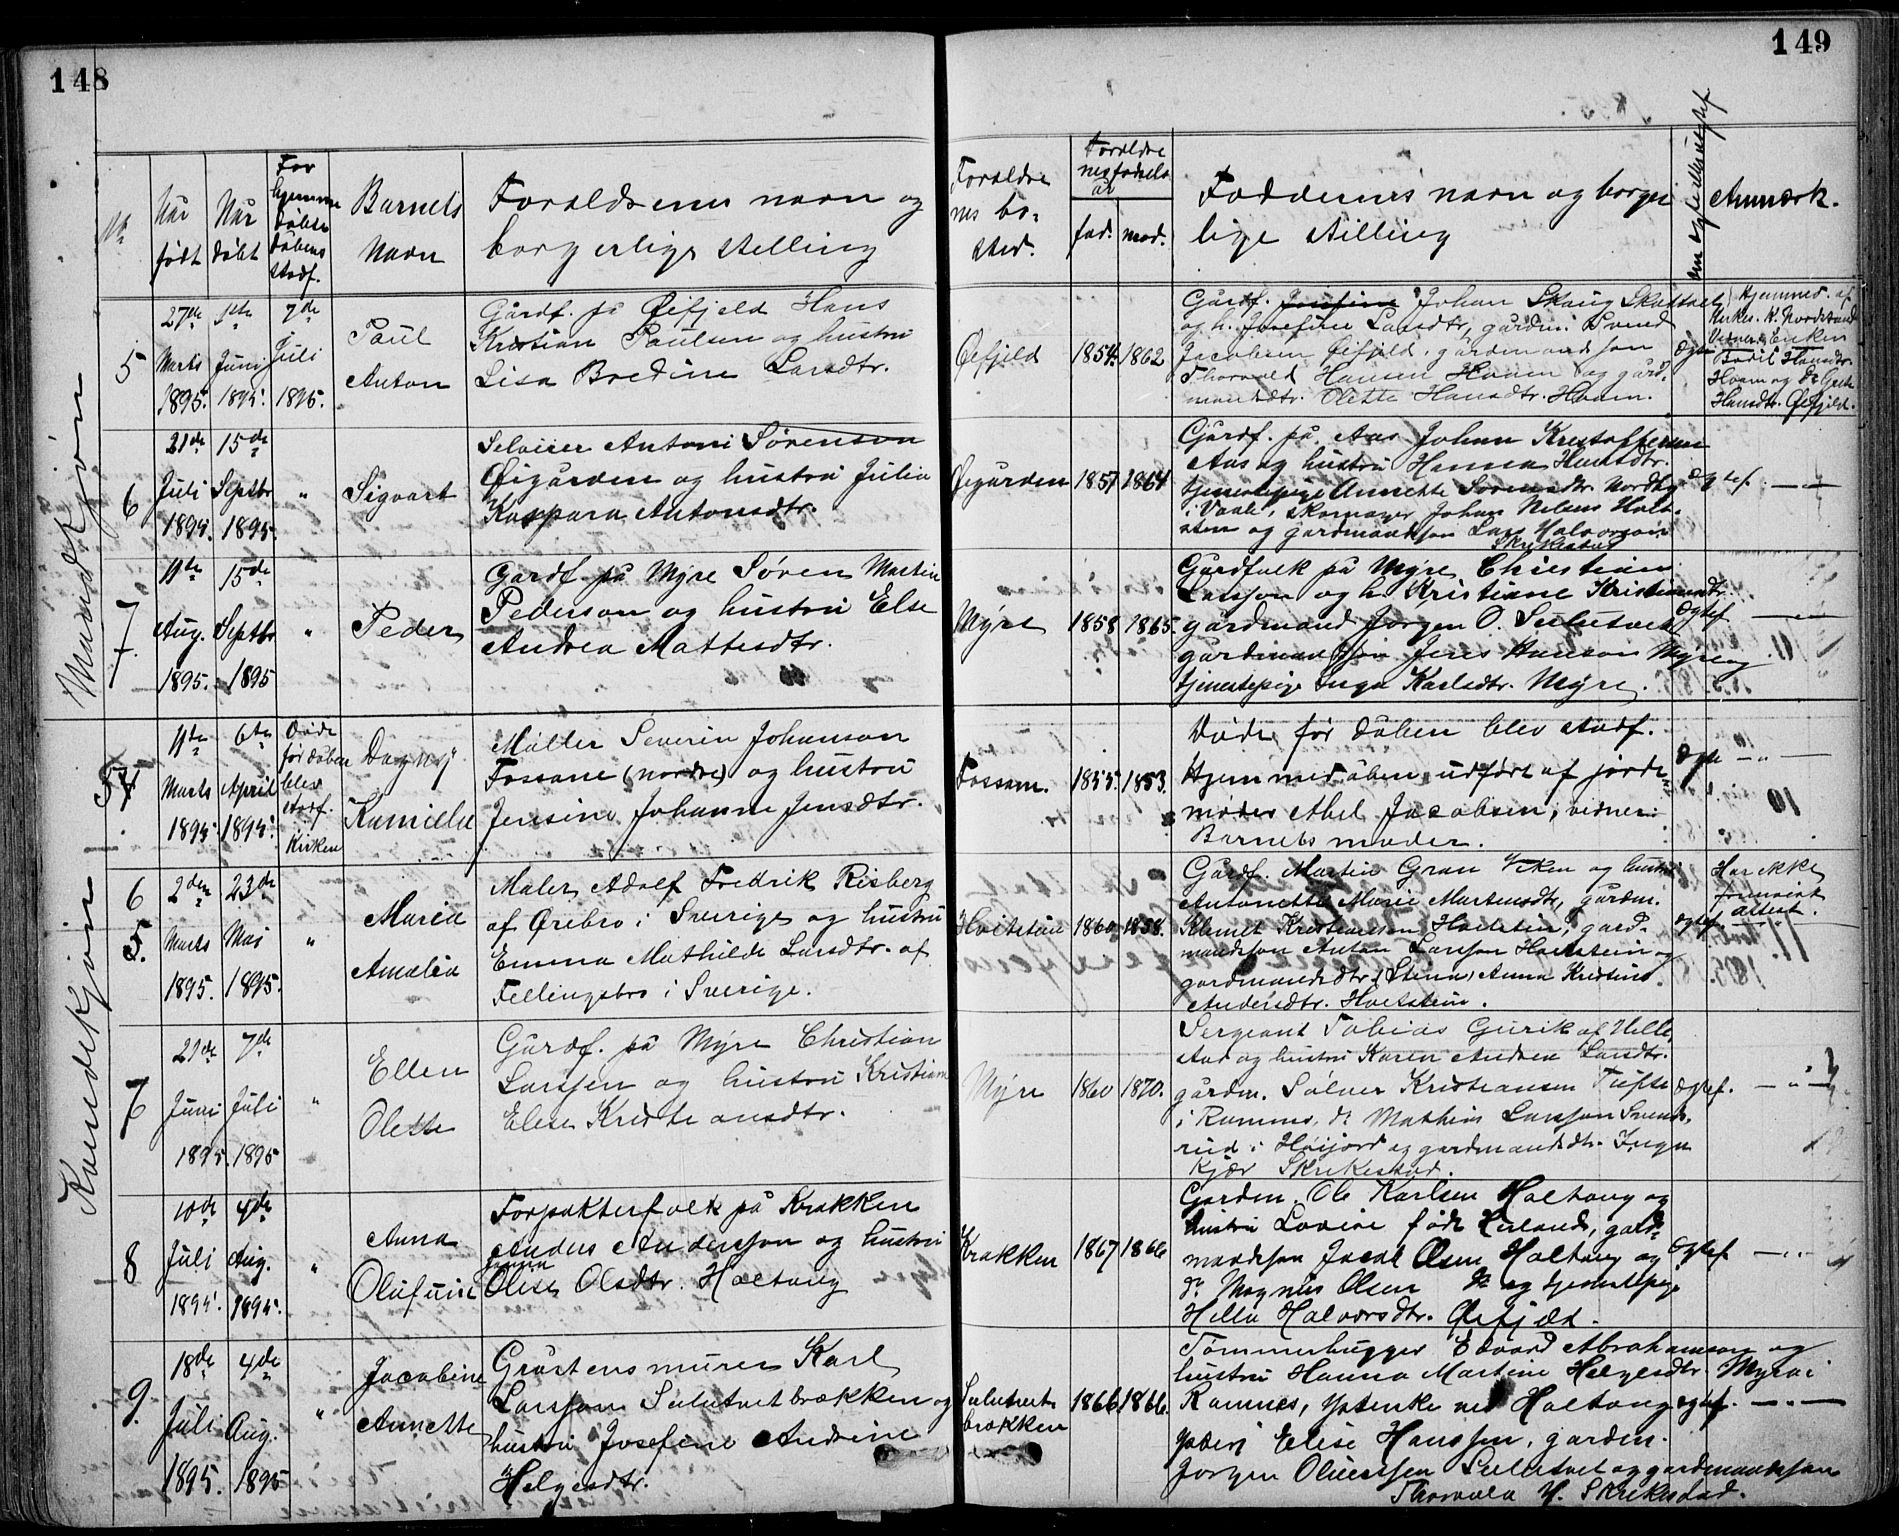 148
149
Mandkjøn
Kvindekjøn
No
Når født
Når døbt
For hjemme døbte dåbens stadf.
Barnets Navn
Forældrenes navn og
borgerlige stilling
Forældre
nes bo-
sted.
Forældre
nes fødsels
år
fad.
mod.
Faddernes navn og borger
lige stilling
om ægte eller uægtef
Anmærk.
5
27de Marts 1895.
1ste Juni 1895.
7de Juli 1895.
Paul
Anton
Gårdf. på Øifjeld Hans
Kristian Paulsen og hustru
Lisa Bredine Larsdtr.
Øifjeld
1854.
1862
Gårdf. Johan Skaug
og h. Josefine Larsdtr, gårdm. Svend
Jacobsen Øifjeld, gårdmandsøn
Thorvald Hansen Hoem og gård-
mandsdtr. Olette Hansdtr. Hoem.
Ægte
Hjemmed. af
Kirkes. K. Nordstrand
Vidner: Enken
Bodil Hansdtr.
Hoem og
Hansdtr. Øifjeld.
6
21de Juli 1895.
15de Septbr 1895.
"
Sigvart
Selveier Antoni Sørenson
Øigården og hustru Julia
Kaspara Antonsdtr.
Øigården
1857
1864
Gårdf. på Aas Johan Kristoffersen
Aas og hustru Hanna Hansdtr.
tjenestepige Annette Sørensdtr. Nordby
i Vaale, skomager Johan Nilsen Holt-
sten og gårdmandsøn Lars Halvorsen
Skrikestad
Ægtef.
— " —
7
7.
11te Aug. 1895.
15de Septbr 1895
"
Peder
Gårdf. på Myre Søren Martin
Pederson og hustru Else
Andrea Mattisdtr.
Myre
1858
1865.
Gårdfolk på Myre Christian
Larsson og h. Kristiane Kristiansdtr.
gårdmand Jørgen O. Sulutvet
gårdmandsøn Jens Hanson Myre og
tjenestepige Inga Karlsdtr. Myre.
Ægtef
— " —
4
11te Marts 1895.
6te April 1895.
Døde
før dåben
blev
stadf.
i Kirken
Dagny
Kamilla
Møller Severin Johanson
Fossane (nordre) og hustru
Jensine Johanne Jensdtr.
Fossam.
1855.
1853.
Døde før dåben blev stadf.
Hjemmedåben udført af jorde-
moder Abel Jacobsen, vidner:
Barnets moder.
Ægte
— " —
6
5.
2den Marts 1895.
23de Mai 1895.
"
Maria
Amalia
Maler Adolf Fredrik Risberg
af Ørebro i Sverige og hustru
Emma Mathilde Larsdtr. af
Fellingsbro i Sverige.
Hvitstein
1860
1858.
Gårdf. Martin Gran Viken og hustru
Antonette Marie Martensdtr, gårdm.
Klemet Kristiansen Hvitstein, gård-
mandsøn Anton Larsson Hvitstein og
gårdmandsdtr. (Stina) Anna Kristine
Andersdtr. Hvitstein.
Ægtef.
Har ikke
forevist
attest.
7
21de Juni 1895.
7de Juli 1895
"
Ellen
Olette
Gårdf. på Myre Christian
Larssen og hustru Kristiane
Elise Kristiansdtr.
Myre
1860
1870.
Sergeant Tobias Gurik af Hille
Aas og hustru Karen Andrea Larsdtr.
gårdm. Sølver Kristiansen Tufte
i Ramnes, do Mathias Larsson Svends-
rud i Høijord og gårdmandsdtr. Inga
Kjær Skrikestad.
Ægtef.
— " —
8
10de Juli 1895.
4de Aug. 1895.
"
Anna
Olufine
Forpakterfolk på Krakken
Anders Andersson og hustru
Olise Olsdtr. Holtong
Krakken
1867
1866
Gårdm. Ole Karlsen Holtong og
hustru Lovise født Esland, gård-
mandsøn Jacob Olsen Holtong og
do. Magnus Olsen do og tjenestepige
Hella Halvorsdtr. Øifjeld.
Ægtef.
— " —
9.
18de Juli 1895.
4de Aug. 1895
"
Jacobine
Annette
Gråstensmurer Karl
Larsson Sulutvetbrækken og
hustru Josefine Andrine
Helgesdtr.
Sulutvet-
brækken
1866.
1866.
Tømmerhugger Edvard Abrahamson og
hustru Hanna Martine Helgesdtr. Myra i
Ramnes, Holtong
Elise Hanssen, gårdm.
Jørgen Oliverssen Sulutvet og gårdmandsøn
Thorvald H. Skrikestad.
ægtef.
— " —